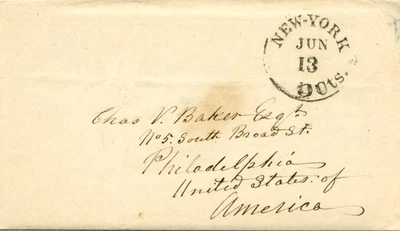 NEW-YORK
JUN
13
Cts.
Chas V. Baker Esqr
No 5. South Broad St.
Philadelphia
United States of
America